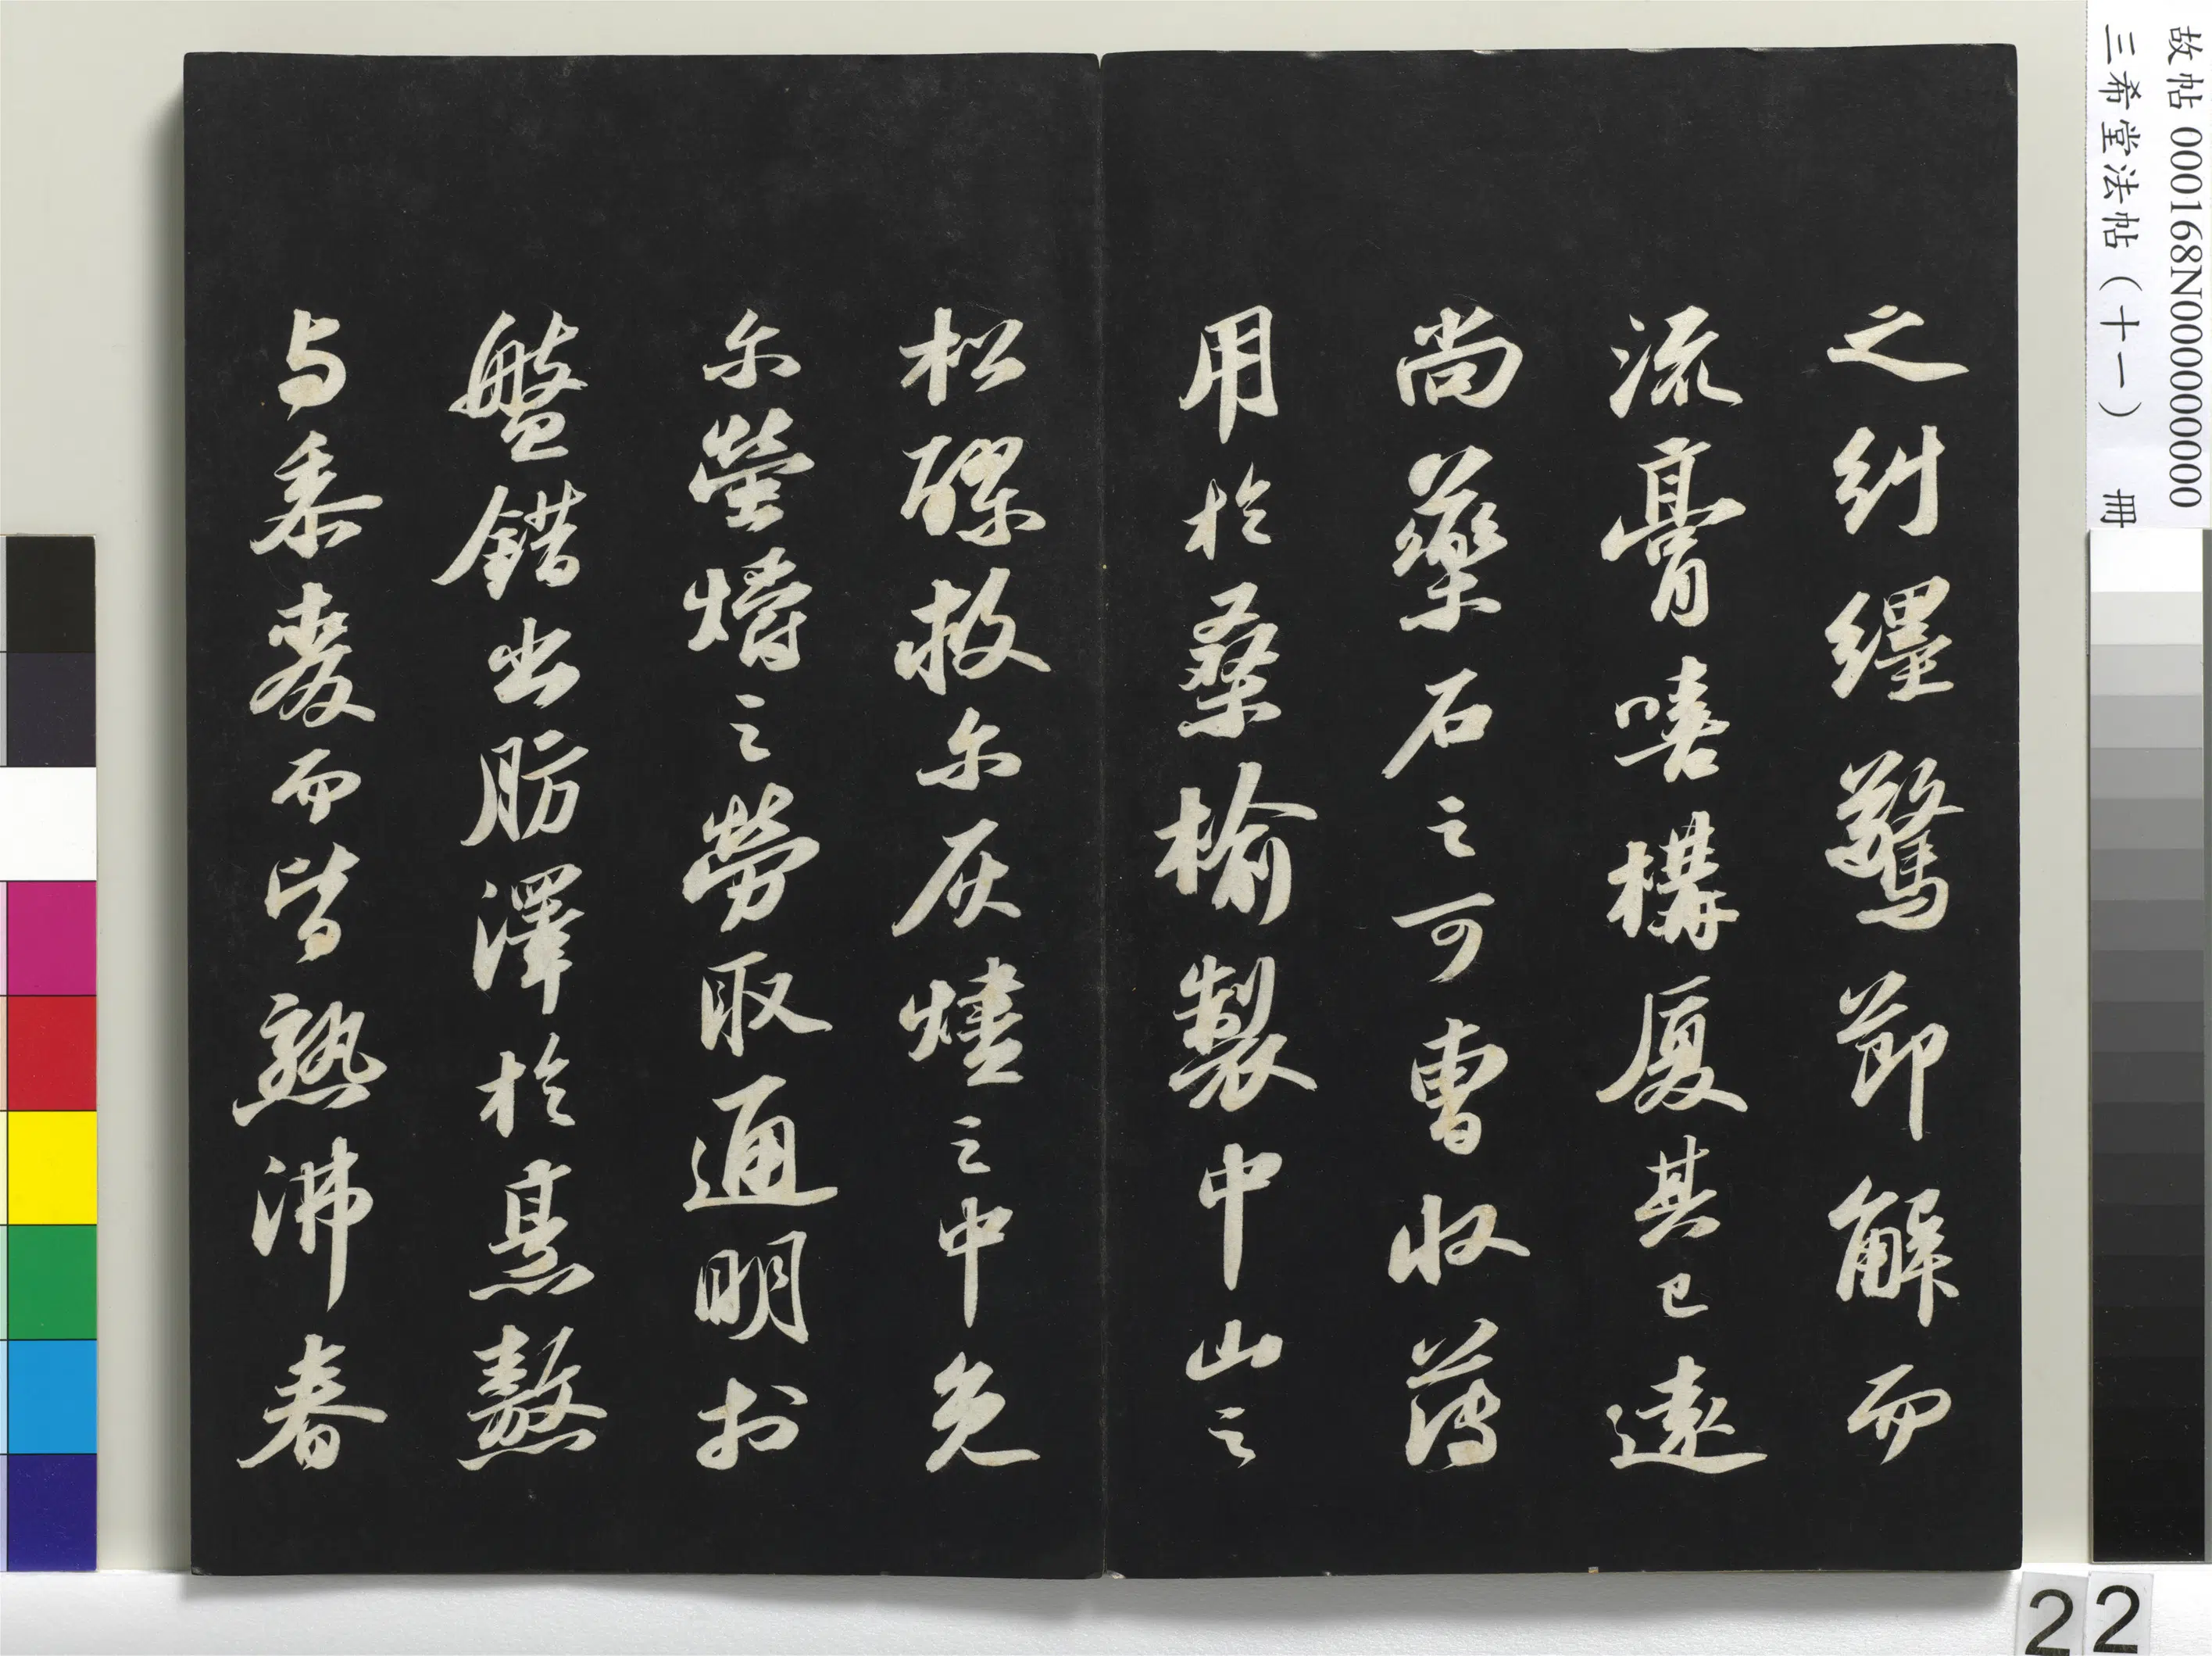 故帖 000168N000000000
三希堂法帖（十一） 冊
之糾纏驚節解而
流膏嘻構厦其已遠
尚藥石之可曹收薄
用於桑榆製中山之
松醪救尔灰燼之中免
尔螢爝之勞取通明於
盤錯出肪澤於烹熬
与黍麦而皆熟沸舂
22